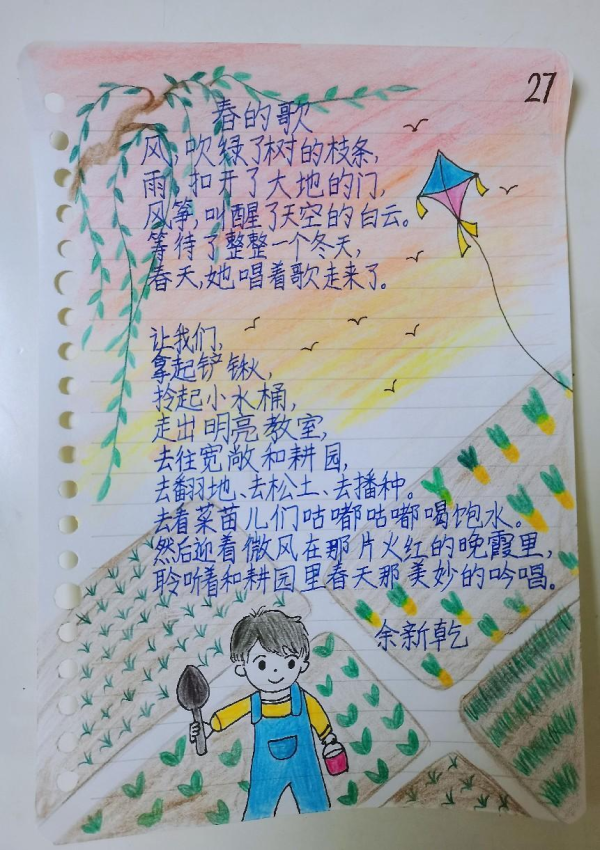 27
春的歌
风,吹绿了树的枝条,
雨,扣开了大地的门,
风筝,叫醒了天空的白云。
等待了整整一个冬天,
春天,她唱着歌走来了。
让我们,
拿起铲锹,
拎起小水桶,
走出明亮教室,
去往宽敞和耕园,
去翻地、去松土、去播种。
去看菜苗儿们咕嘟咕嘟喝饱水。
然后迎着微风在那片火红的晚霞里,
聆听着和耕园里春天那美妙的吟唱。
余新乾